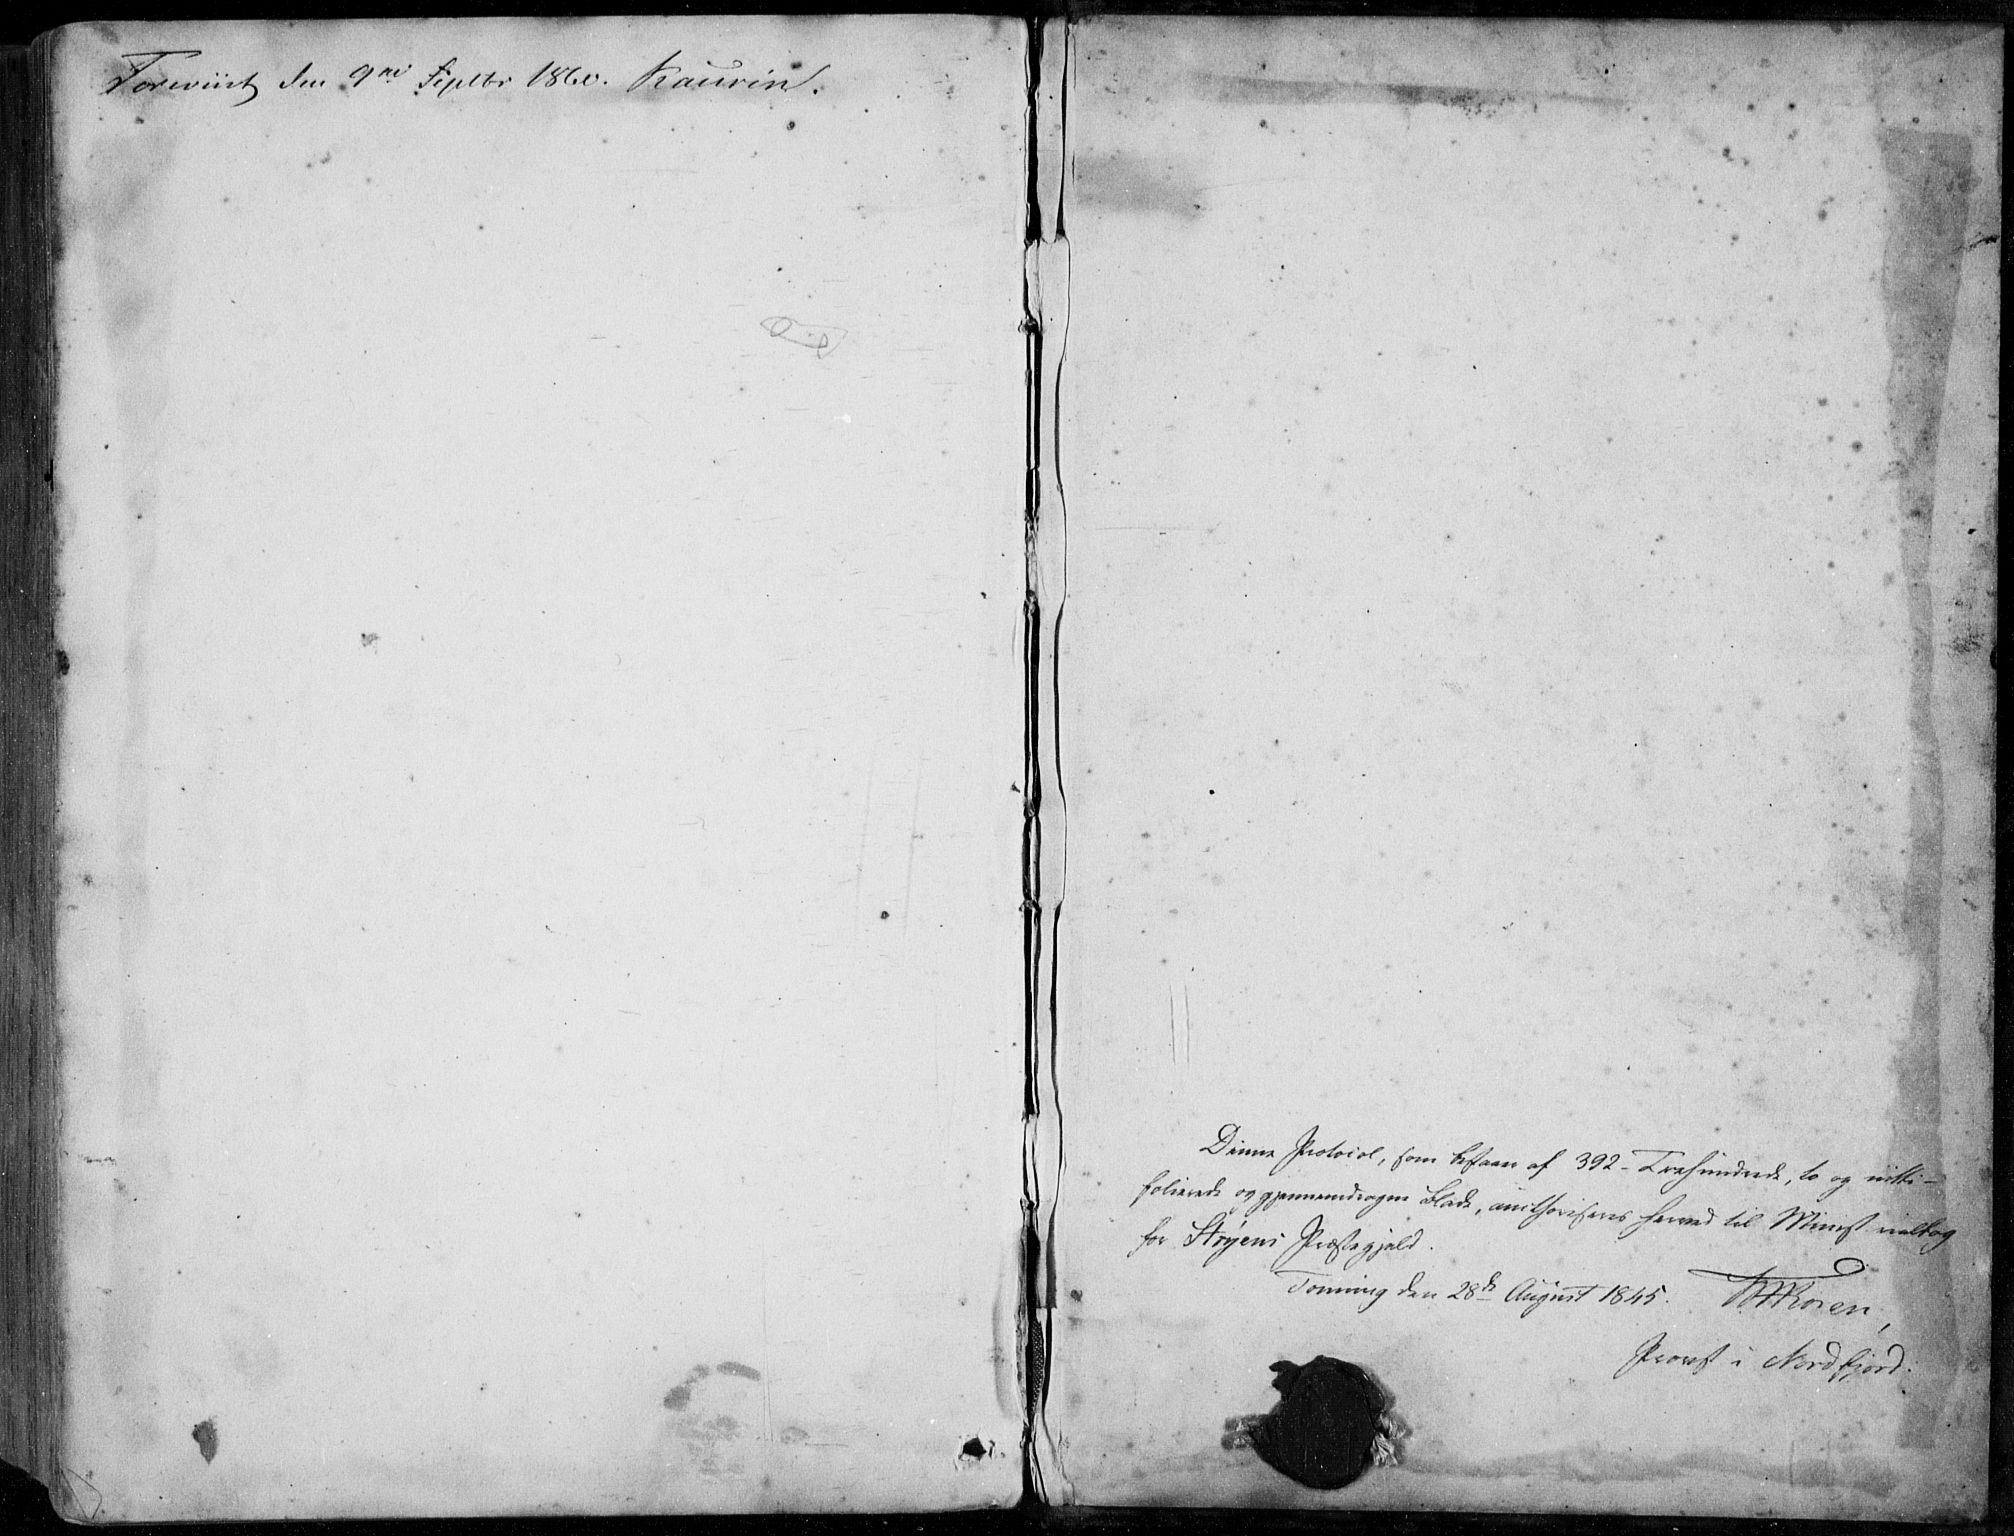 Foreviist den 9de Septbr 1860. Kaurin.
Denne Protocol, som bestaaer af 392 - Trehundrede, to og nitti -
folierede og gjennemdragne Blade, authoriseres herved til Ministerialbog
for Stryens Præstegjeld.
Tonning den 28de August 1845. WKoren,
Provst i Nordfjord.